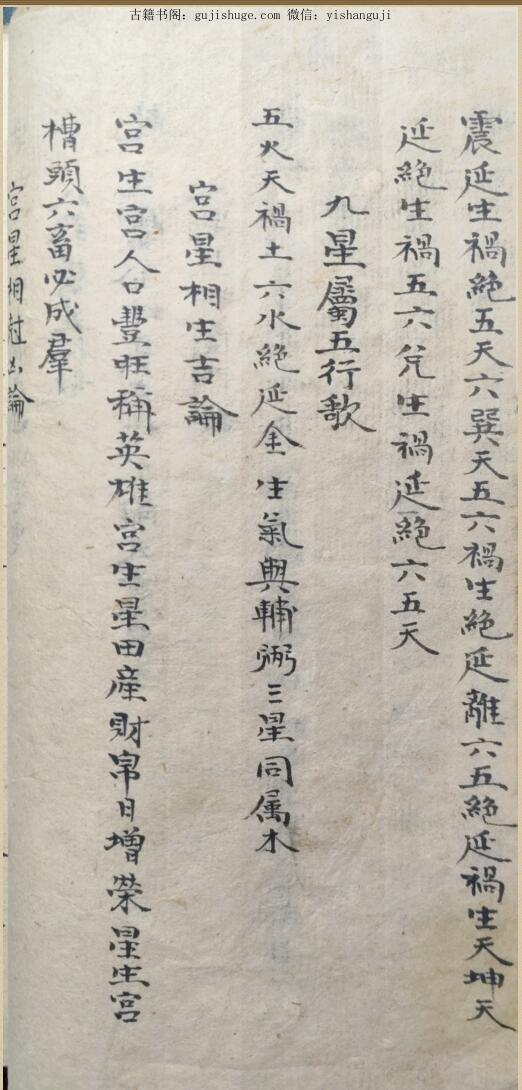 古籍书阁：gujishuge.com 微信：yishanguji
震延生禍絶五天六巽天五六禍生絶延離六五絶延禍生天坤天
延絶生禍五六兌生禍延絶六五天
九星屬五行歌
五火天禍土六水絶延金生氣與輔弼三星同属木
宮星相生吉論
宮生宮人口豐旺稱英雄宮生星田産財帛日增榮星生宮
槽頭六畜必成羣
宮星相尅凶論